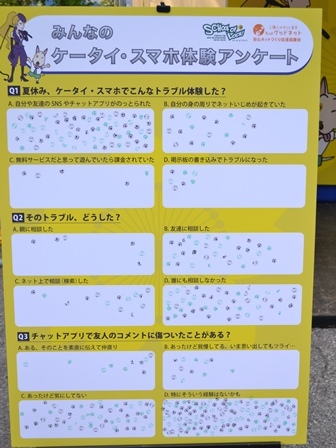 みんなの
ケータイ・スマホ体験アンケート
Q1 夏休み、ケータイ・スマホでこんなトラブル体験した?
A. 自分や友達のSNSやチャットアプリがのっとられた
B. 自分の身の周りでネットいじめが起きていた
C. 無料サービスだと思って遊んでいたら課金されていた
D. 掲示板の書き込みでトラブルになった
Q2 そのトラブル、どうした?
A. 親に相談した
B. 友達に相談した
C. ネット上で相談(検索)した
D. 誰にも相談しなかった
Q3 チャットアプリで友人のコメントに傷ついたことがある?
A. ある、そのことを素直に伝えて仲直り
B. あったけど我慢してる。いま思い出してもツライ…
C. あったけど気にしてない
D. 特にそういう経験はないかも